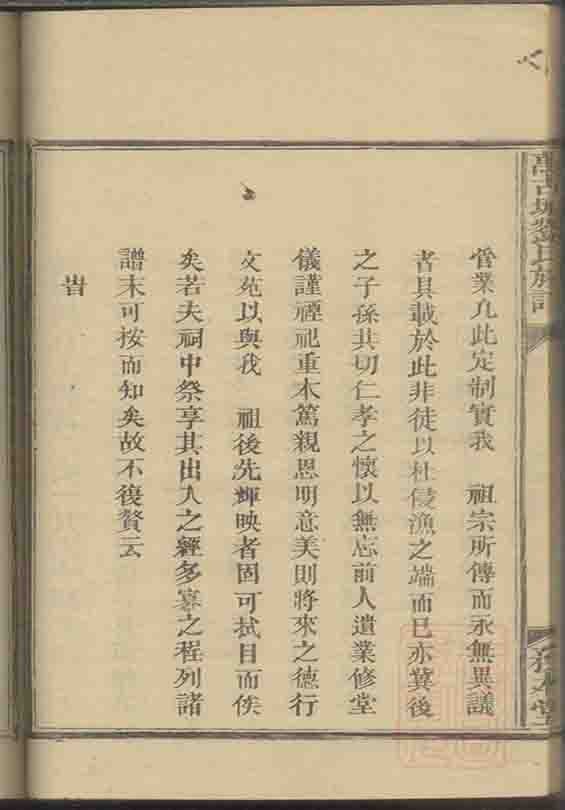 氏族譜
管業凡此定制實我 祖宗所傳而永無異議
者具載於此非徒以杜侵漁之端而已亦冀後
之子孫其切仁孝之懷以無忘前人遺業修堂
儀謹禋祀重本篤親恩明意美則將來之德行
文苑以與我 祖後先輝映者固可拭目而俟
矣若夫祠中祭享其出入之經多寡之程列諸
譜末可按而知矣故不復贅云